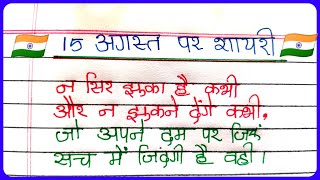 15 अगस्त पर शायरी
न सिर झुका है कभी
और न झुकने देंगे कभी,
जो अपने दम पर जिएं
सच में जिंदगी है वही।